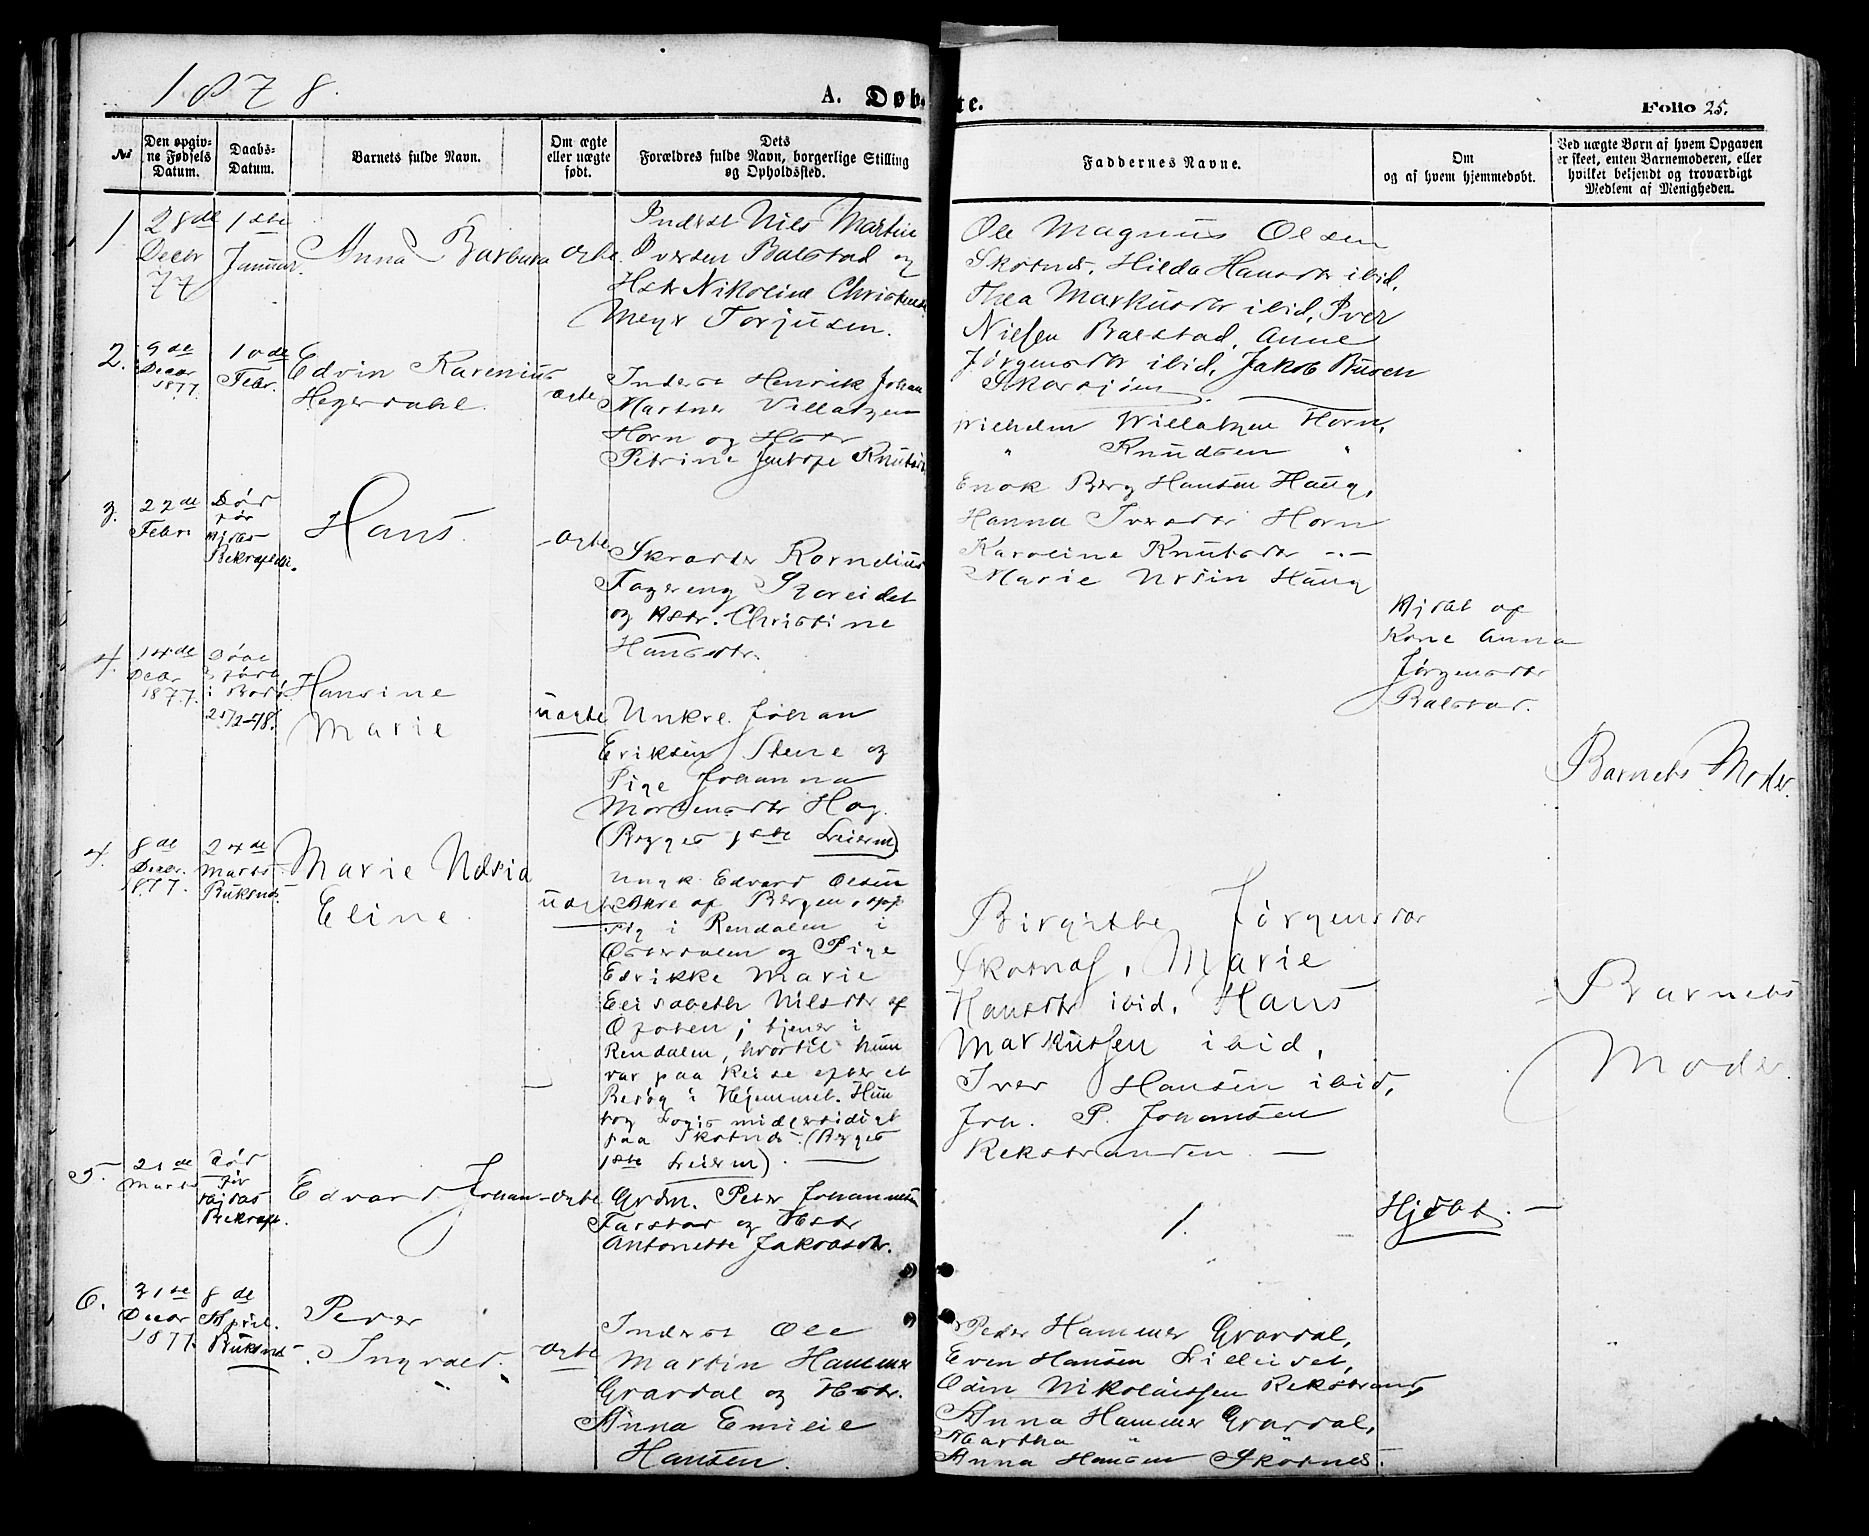 1878.
A. Døbte.
Folio 25.
No
Den opgivne Fødsels Datum.
Daabs-Datum.
Barnets fulde Navn.
Om ægte eller uægte født.
Dets Forældres fulde Navn, borgerlige Stilling og Opholdssted.
Faddernes Navne.
Om og af hvem hjemmedøbt.
Ved uægte Børn af hvem Opgaven er skeet, enten Barnemoderen, eller hvilket bekjendt og troværdigt Medlem af Menigheden.
1
28de
Decbr
77
1ste
Januar.
Anna Barbara
ægte
Inderst Nils Martin
Iversen Balstad og
Hstr Nikoline
Meyer Torjusen.
Ole Magnus Olsen
Skotnes, Hilda Hansdtr ibid,
Thea Markusdtr ibid, Iver
Nielsen Balstad, Anne
Jørgensdtr ibid, Jakob Busch
2.
9de
Decbr
1877.
10de
Febr.
Edvin Karenius
Hegerdahl.
ægte
Inderst Henrik Johan
Martner Villatzen
Horn og Hstr
Petrine Jentofe Knuts
Wilhelm Willatzen Horn,
" Knudsen "
Enok Berg Hansen Haug,
Hanna Iversdtr Horn
Karoline Knutsdtr -"-
Marie Ursin Haug
3.
22de
Febr
Død
før
Hjdøbs
Hans.
ægte
Kornelius
Fagereng Storeidet
og Hstr. Christine
Hansdtr.
Hjdøbt af
Kone Anna
Jørgensdtr
Balstad.
4.
14de
Decbr
1877.
Døbt
i Bodø
25/2-78.
Hansine
Marie
uægte
Unkrl. Johan
Eriksen Stene og
Pige Johanna
Mortensdtr Hag.
(Begges 1ste Leierm).
Barnets Moder.
4.
8de
Decbr.
1877.
24de
Marts
Buksnes.
Marie
Eline.
uægte
Ungk. Edvard Olsen
af Bergen, opf.
sig i Rendalen i
Østerdalen og Pige
Edrikke Marie
Elisabeth Nilsdtr af
Ofoten, tjener i
Rendalen, hvortil hun
var paa Reise efter et
Besøg i Hjemmet. Hun
tog Logis midlertidigt
paa Skotnes. (Begges
1ste Leierm).
Birgitte Jørgensdtr
Skotnes, Marie
Hansdtr ibid, Hans
Markussen ibid,
Iver Hansen ibid,
Joh. P. Johansen
Rekstranden.
Barnets
Moder.
5.
21de
Marts
Død
før
Hjdøbs
Bekræft.
Edvard Johan
ægte
Grdm. Peter Johannesen
Farstad og Hstr
Antonette Jakobsdtr.
Hjdøbt.
6.
31te
Decbr
1877.
8de
April.
Buksnes
Peder
Ingvald.
ægte
Inderst Ole
Martin Hammer
Gravdal og Hstr.
Anna Emilie
Hansen.
Peder Hammer Gravdal,
Even Hansen Lilleidet,
Odin Nikolaissen Rekstrand,
Anna Hammer Gravdal,
Martha " "
Anna Hansen Skotnes.